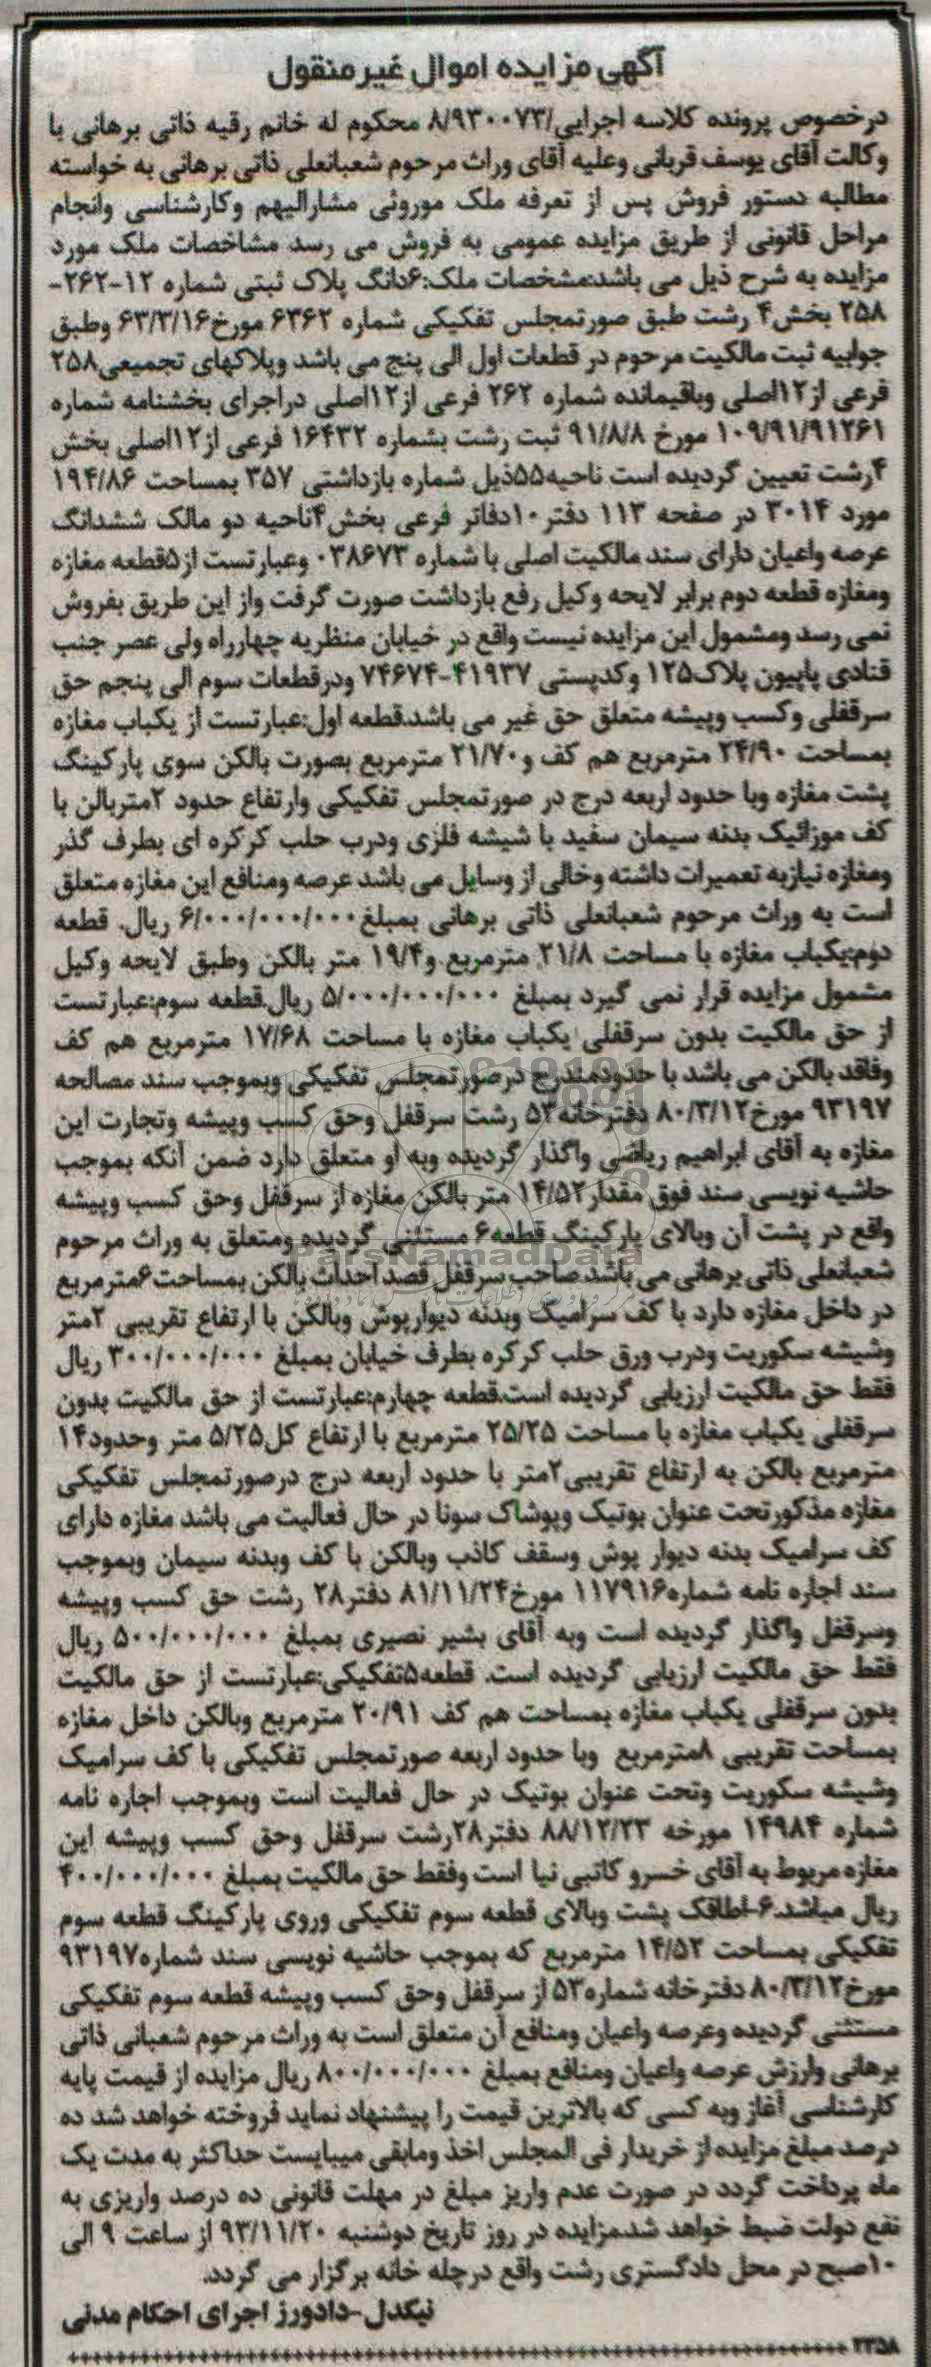 آگهی مزایده اموال غیرمنقول
درخصوص پرونده کلاسه اجرایی/۸/۹۳۰۰۷۳ محکوم له خانم رقیه ذاتی برهانی با
وکالت آقای یوسف قربانی وعلیه آقای وراث مرحوم شعبانعلی ذاتی برهانی به خواسته
مطالبه دستور فروش پس از تعرفه ملک موروثی مشارالیهم وکارشناسی وانجام
مراحل قانونی از طریق مزایده عمومی به فروش می رسد مشاخصات ملک مورد
مزایده به شرح ذیل می باشد:مشخصات ملک:۶دانگ پلاک ثبتی شماره ۱۲-۲۶۲-
۲۵۸ بخش۴ رشت طبق صورتمجلس تفکیکی شماره ۶۳۶۲ مورخ۶۳/۳/۱۶ وطبق
جوابیه ثبت مالکیت مرحوم در قطعات اول الی پنج می باشد وپلاکهای تجمیعی۲۵۸
فرعی از۱۲اصلی وباقیمانده شماره ۲۶۲ فرعی از۱۲اصلی دراجرای بخشنامه شماره
۱۰۹/۹۱/۹۱۲۶۱ مورخ ۹۱/۸/۸ ثبت رشت بشماره ۱۶۴۳۲ فرعی از۱۲اصلی بخش
۴رشت تعیین گردیده است ناحیه۵۵ذیل شماره بازداشتی ۳۵۷ بمساحت ۱۹۴/۸۶
مورد ۳۰۱۴ در صفحه ۱۱۳ دفتر۱۰دفاتر فرعی بخش۴ناحیه دو مالک ششدانگ
عرصه واعیان دارای سند مالکیت اصلی با شماره ۰۳۸۶۷۳ وعبارتست از۵قطعه مغازه
ومغازه قطعه دوم برابر لایحه وکیل رفع بازداشت صورت گرفت واز این طریق بفروش
نمی رسد ومشمول این مزایده نیست واقع در خیابان منظریه چهارراه ولی عصر جنب
قنادی پاپیون پلاک۱۲۵ وکدپستی ۴۱۹۳۷-۷۴۶۷۴ ودرقطعات سوم الی پنجم حق
سرقفلی وکسب وپیشه متعلق حق غیر می باشد.قطعه اول:عبارتست از یکباب مغازه
بمساحت ۲۴/۹۰ مترمربع هم کف و۲۱/۷۰ مترمربع بصورت بالکن سوی پارکینگ
پشت مغازه وبا حدود اربعه درج در صورتمجلس تفکیکی وارتفاع حدود ۲متربالن با
کف موزائیک بدنه سیمان سفید با شیشه فلزی ودرب حلب کرکره ای بطرف گذر
ومغازه نیازبه تعمیرات داشته وخالی از وسایل می باشد عرصه ومنافع این مغازه متعلق
است به وراث مرحوم شعبانعلی ذاتی برهانی بمبلغ۶/۰۰۰/۰۰۰/۰۰۰ ریال. قطعه
دوم:یکباب مغازه با مساحت ۲۱/۸ مترمربع و۱۹/۴ متر بالکن وطبق لایحه وکیل
مشمول مزایده قرار نمی گیرد بمبلغ ۵/۰۰۰/۰۰۰/۰۰۰ ریال.قطعه سوم:عبارتست
از حق مالکیت بدون سرقفلی یکباب مغازه با مساحت ۱۷/۶۸ مترمربع هم کف
وفاقد بالکن می باشد با حدودمندرج درصورتمجلس تفکیکی وبموجب سند مصالحه
۹۳۱۹۷ مورخ۸۰/۳/۱۲ دفترخانه۵۳ رشت سرقفل وحق کسب وپیشه وتجارت این
مغازه به آقای ابراهیم ریاضی واگذار گردیده وبه او متعلق دارد ضمن آنکه بموجب
حاشیه نویسی سند فوق مقدار۱۴/۵۲ متر بالکن مغازه از سرقفل وحق کسب وپیشه
واقع در پشت آن وبالای پارکینگ قطعه۶ مستثنی گردیده ومتعلق به وراث مرحوم
شعبانعلی ذاتی برهانی می باشد.صاحب سرقفل قصد احداث بالکن بمساحت۶مترمربع
در داخل مغازه دارد با کف سرامیک وبدنه دیوارپوش وبالکن با ارتفاع تقریبی ۲متر
وشیشه سکوریت ودرب ورق حلب کرکره بطرف خیابان بمبلغ ۳۰۰/۰۰۰/۰۰۰ ریال
فقط حق مالکیت ارزیابی گردیده است.قطعه چهارم:عبارتست از حق مالکیت بدون
سرقفلی یکباب مغازه با مساحت ۲۵/۲۵ مترمربع با ارتفاع کل۵/۲۵ متر وحدود۱۴
مترمربع بالکن به ارتفاع تقریبی۲متر با حدود اربعه درج درصورتمجلس تفکیکی
مغازه مذکورتحت عنوان بوتیک وپوشاک سونا در حال فعالیت می باشد مغازه دارای
کف سرامیک بدنه دیوار پوش وسقف کاذب وبالکن با کف وبدنه سیمان وبموجب
سند اجاره نامه شماره۱۱۷۹۱۶ مورخ۸۱/۱۱/۲۴ دفتر۲۸ رشت حق کسب وپیشه
وسرقفل واگذار گردیده است وبه آقای بشیر نصیری بمبلغ ۵۰۰/۰۰۰/۰۰۰ ریال
فقط حق مالکیت ارزیابی گردیده است. قطعه۵تفکیکی:عبارتست از حق مالکیت
بدون سرقفلی یکباب مغازه بمساحت هم کف ۲۰/۹۱ مترمربع وبالکن داخل مغازه
بمساحت تقریبی ۸مترمربع وبا حدود اربعه صورتمجلس تفکیکی با کف سرامیک
وشیشه سکوریت وتحت عنوان بوتیک در حال فعالیت است وبموجب اجاره نامه
شماره ۱۴۹۸۴ مورخه ۸۸/۱۲/۲۳ دفتر۲۸رشت سرقفل وحق کسب وپیشه این
مغازه مربوط به آقای خسرو کاتبی نیا است وفقط حق مالکیت بمبلغ ۴۰۰/۰۰۰/۰۰۰
ریال مباشد.۶-اطاقک پشت وبالای قطعه سوم تفکیکی وروی پارکینگ قطعه سوم
تفکیکی بمساحت ۱۴/۵۲ مترمربع که بموجب حاشیه نویسی سند شماره۹۳۱۹۷
مورخ۸۰/۳/۱۲ دفترخانه شماره۵۳ از سرقفل وحق کسب وپیشه قطعه سوم تفکیکی
مستثنی گردیده وعرصه واعیان ومنافع آن متعلق است به وراث مرحوم شعبانی ذاتی
برهانی وارزش عرصه واعیان ومنافع بمبلغ ۸۰۰/۰۰۰/۰۰۰ ریال مزایده از قیمت پایه
کارشناسی آغاز وبه کسی که بالاترین قیمت را پیشنهاد نماید فروخته خواهد شد ده
درصد مبلغ مزایده از خریدار فی المجلس اخذ ومابقی میبایست حداکثر به مدت یک
ماه پرداخت گردد در صورت عدم واریز مبلغ در مهلت قانونی ده درصد واریزی به
نفع دولت ضبط خواهد شد.مزایده در روز تاریخ دوشنبه ۹۳/۱۱/۲۰ از ساعت ۹ الی
۱۰صبح در محل دادگستری رشت واقع درچله خانه برگزار می گردد.
نیکدل-دادورز اجرای احکام مدنی
۲۳۵۸
ParsNamadData